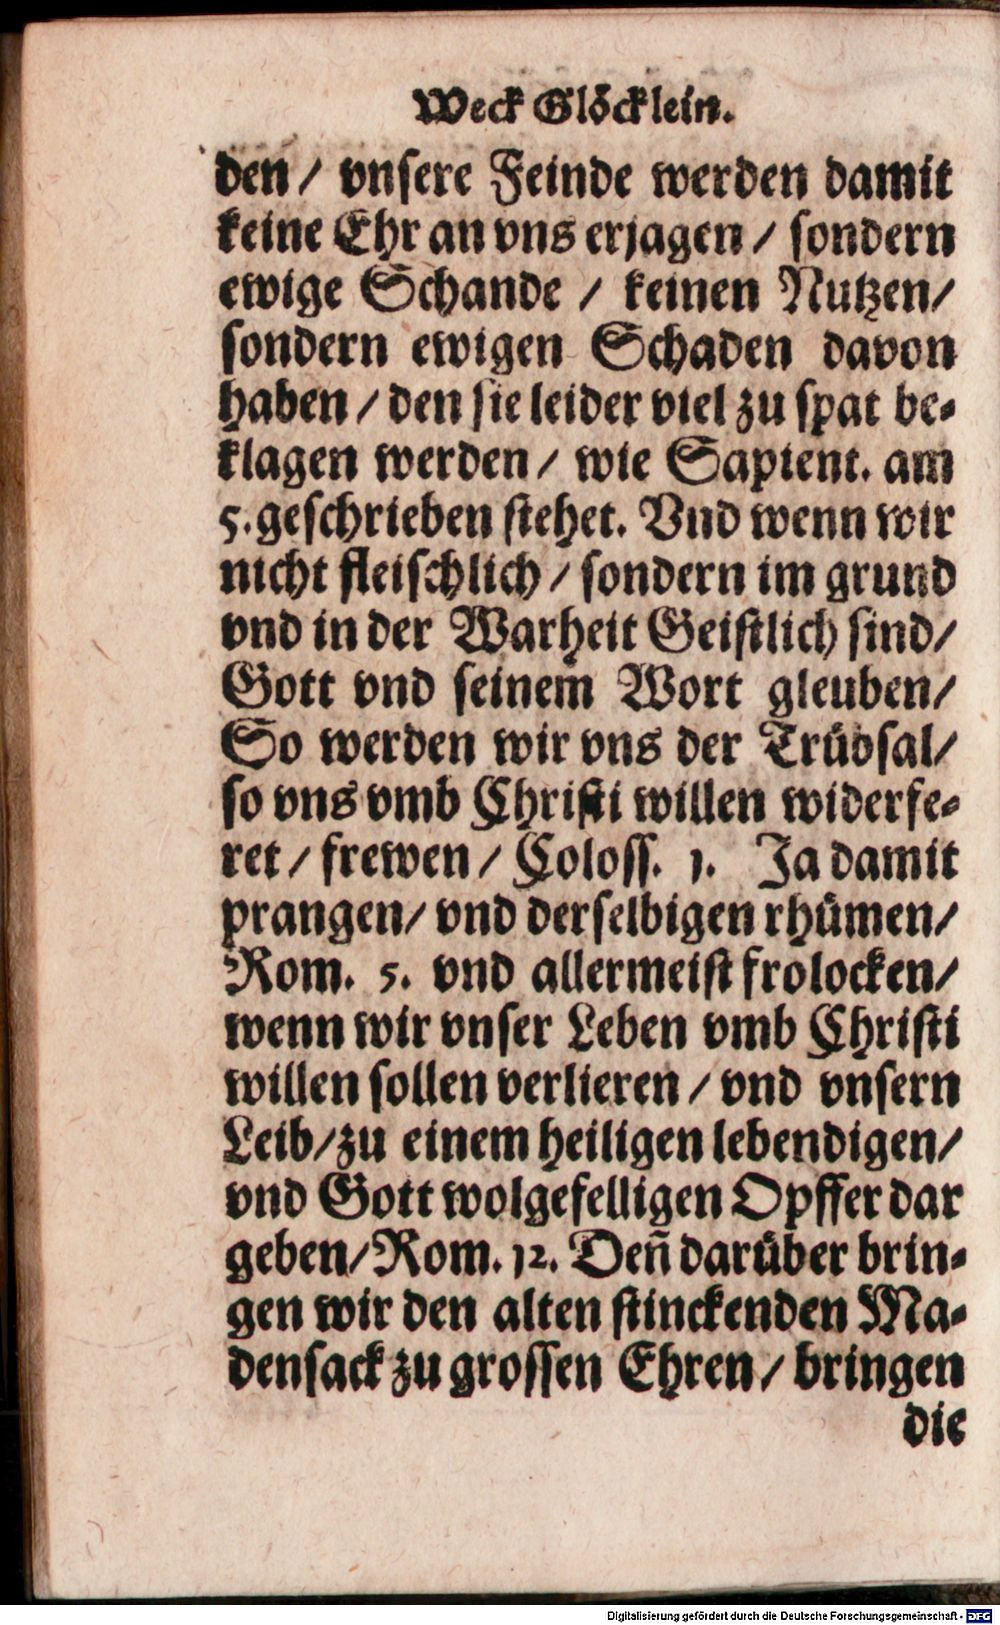 Weck Glöcklein.
den / vnsere Feinde werden damit
keine Ehr an vns erjagen / sondern
ewige Schande / keinen Nutzen/
sondern ewigen Schaden davon
haben / den sie leider viel zu spat be-
klagen werden / wie Sapient. am
5. geschrieben stehet. Vnd wenn wir
nicht fleischlich / sondern im grund
vnd in der Warheit Geistlich sind/
Gott vnd seinem Wort gleuben/
So werden wir vns der Trübsal/
so vns vmb Christi willen widerfe-
ret / frewen / Coloss. 1. Ja damit
prangen/ vnd derselbigen rhümen/
Rom. 5. vnd allermeist frolocken/
wenn wir vnser Leben vmb Christi
willen sollen verlieren / vnd vnsern
Leib/zu einem heiligen lebendigen/
vnd Gott wolgefelligen Opffer dar
geben/Rom. 12. Deñ darüber brin-
gen wir den alten stinckenden Ma-
densack zu grossen Ehren / bringen
die
Digitalisierung gefördert durch die Deutsche Forschungsgemeinschaft - DFG